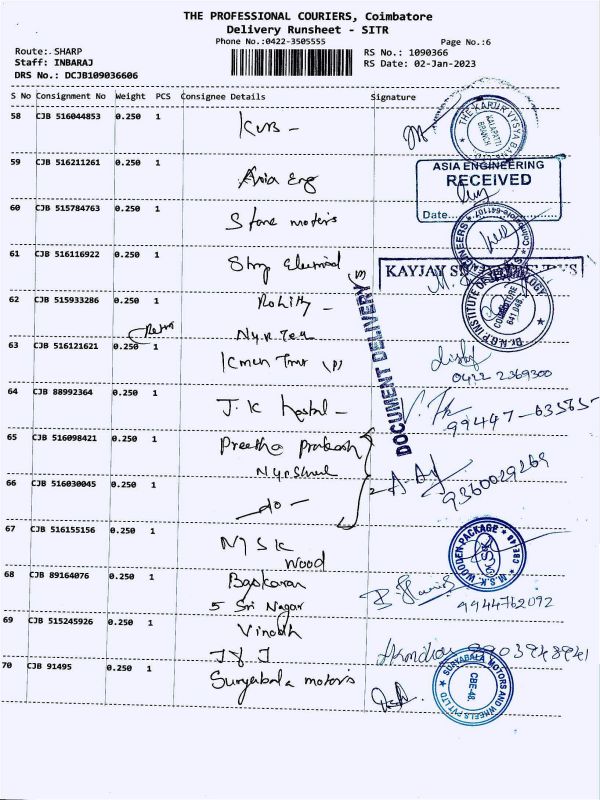 THE PROFESSIONAL COURIERS, Coimbatore
Delivery Runsheet - SITR
Phone No.:0422-3505555 Page No.:6
Route: SHARP RS No.: 1090366
Staff: INBARAJ RS Date: 02-Jan-2023
DRS No.: DCJB109036606
S No Consignment No Weight PCS Consignee Details Signature
58 CJB 516044853 0.250 1 KVB -
THE KARUR VYSYA BANK
KALAPATTI BRANCH
59 CJB 516211261 0.250 1 Asia Eng
ASIA ENGINEERING
RECEIVED
Date
60 CJB 515784763 0.250 1 Stone motors
Coimbatore-641107
61 CJB 516116922 0.250 1
KAYJAY
62 CJB 515933286 0.250 1 Rohith -
Dr. N.G.P INSTITUTE OF TECHNOLOGY
COIMBATORE 641 048
DOCUMENT DELIVERY
63 CJB 516121621 0.250 1
0422 2369300
64 CJB 88992364 0.250 1 J.K hostel -
99447-63565
65 CJB 516098421 0.250 1 Preetha Prakash
66 CJB 516030045 0.250 1 -do-
9360029269
67 CJB 516155156 0.250 1 M S K
Wood
M.S.K WOODEN-PACKAGE
CBE-48
68 CJB 89164076 0.250 1 Baskaran
5 Sri Nagar
9944762092
69 CJB 515245926 0.250 1 Vinoth
9903948941
70 CJB 91495 0.250 1 Suryabala motors
SURYABALA MOTORS AND WHEELS PVT LTD
CBE-48